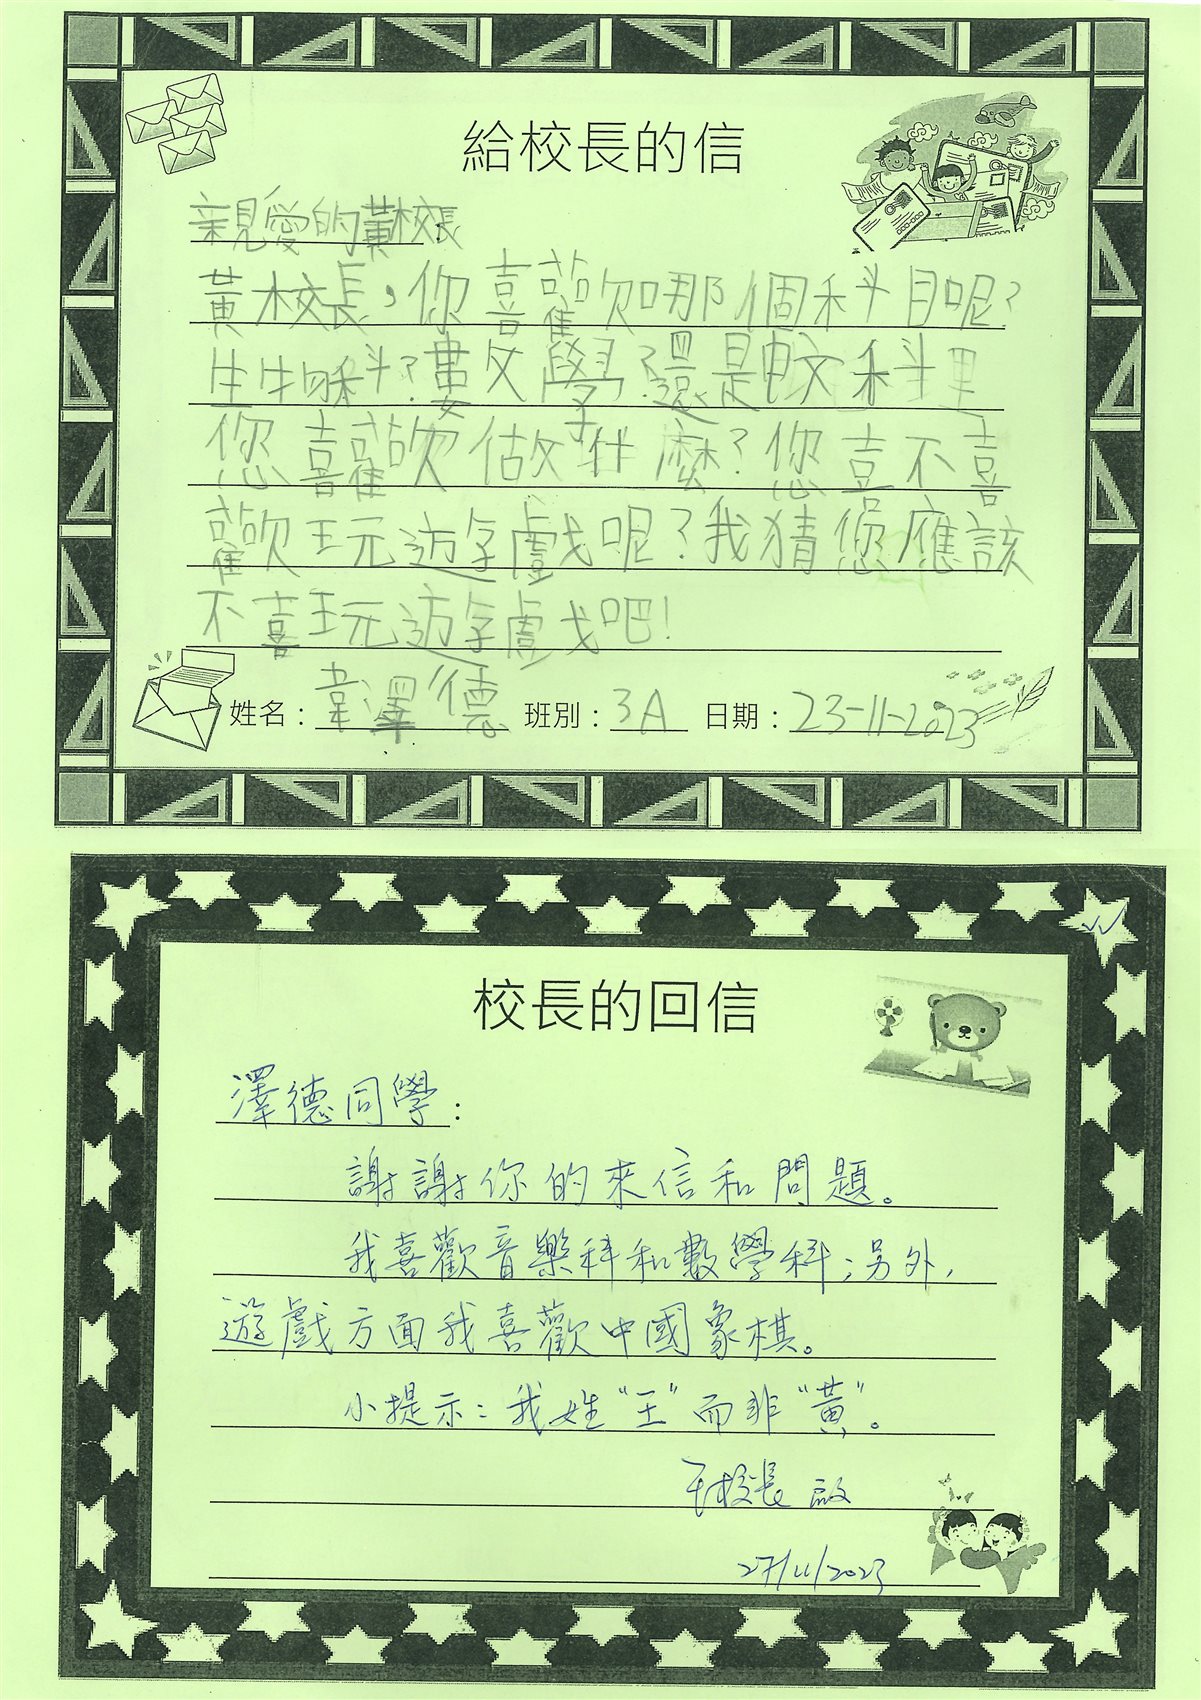 給校長的信
親愛的黃校長
黃校長,你喜歡哪個科目呢?
生物科?數文學?還是中文科
您喜歡做什麼?您豈不喜
歡玩遊字戲呢?我猜您應該
不喜玩遊字戲吧!
姓名: 韋澤德 班別: 3A 日期: 23-11-2023
校長的回信
澤德同學:
謝謝你的來信和問題。
我喜歡音樂科和數學科;另外,
遊戲方面我喜歡中國象棋。
小提示:我姓"王"而非"黃"。
王校長 啟
27/11/2023